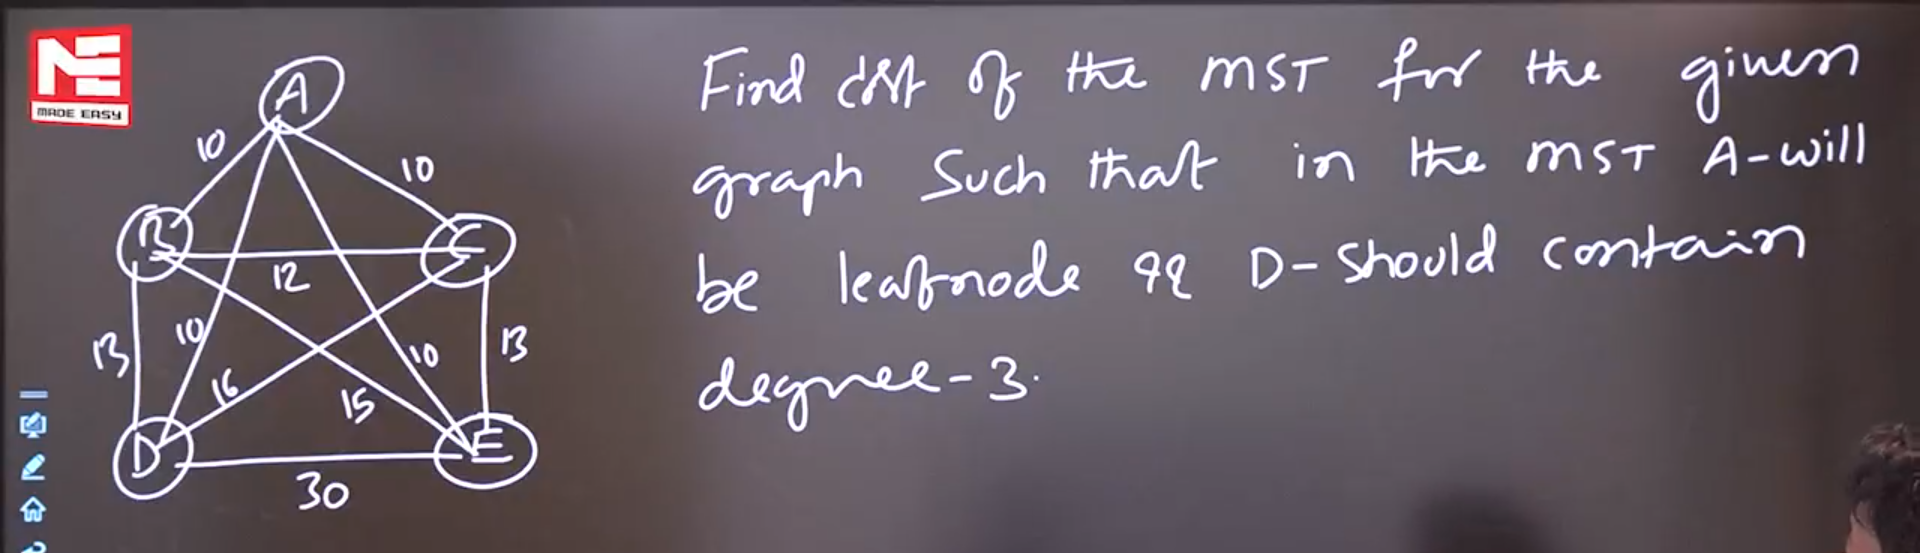 ME
MADE EASY
A
10
10
B
C
12
13
10
10
13
16
15
D
E
30
Find cost of the MST for the given
graph such that in the MST A-will
be leaf-node D-should contain
degree-3.